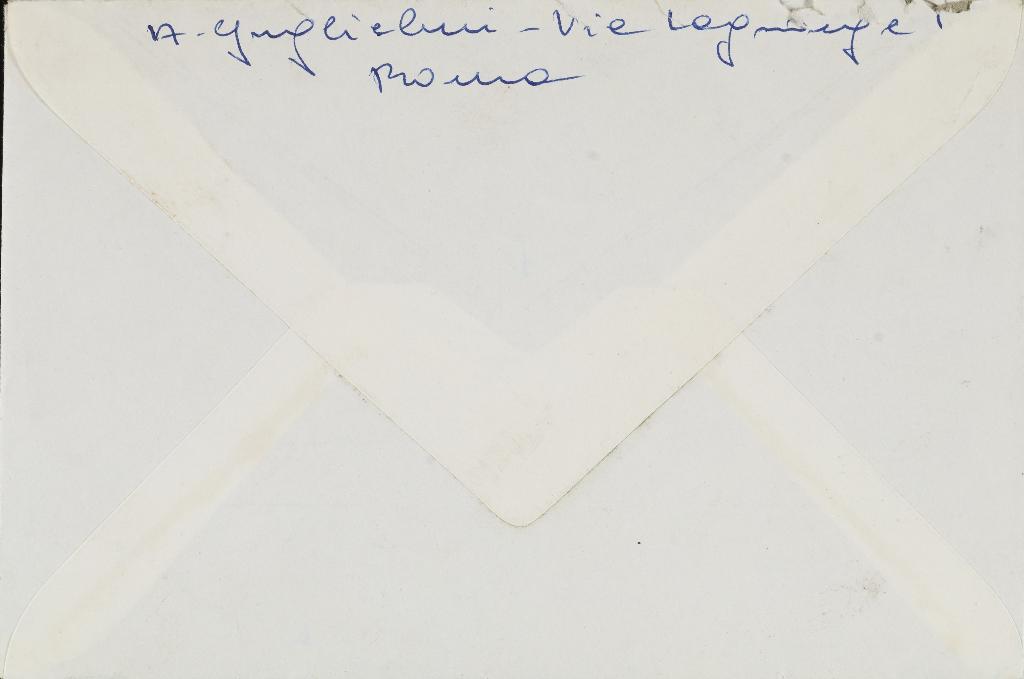 A. Guglielmi - Via Lagrange 1
Roma